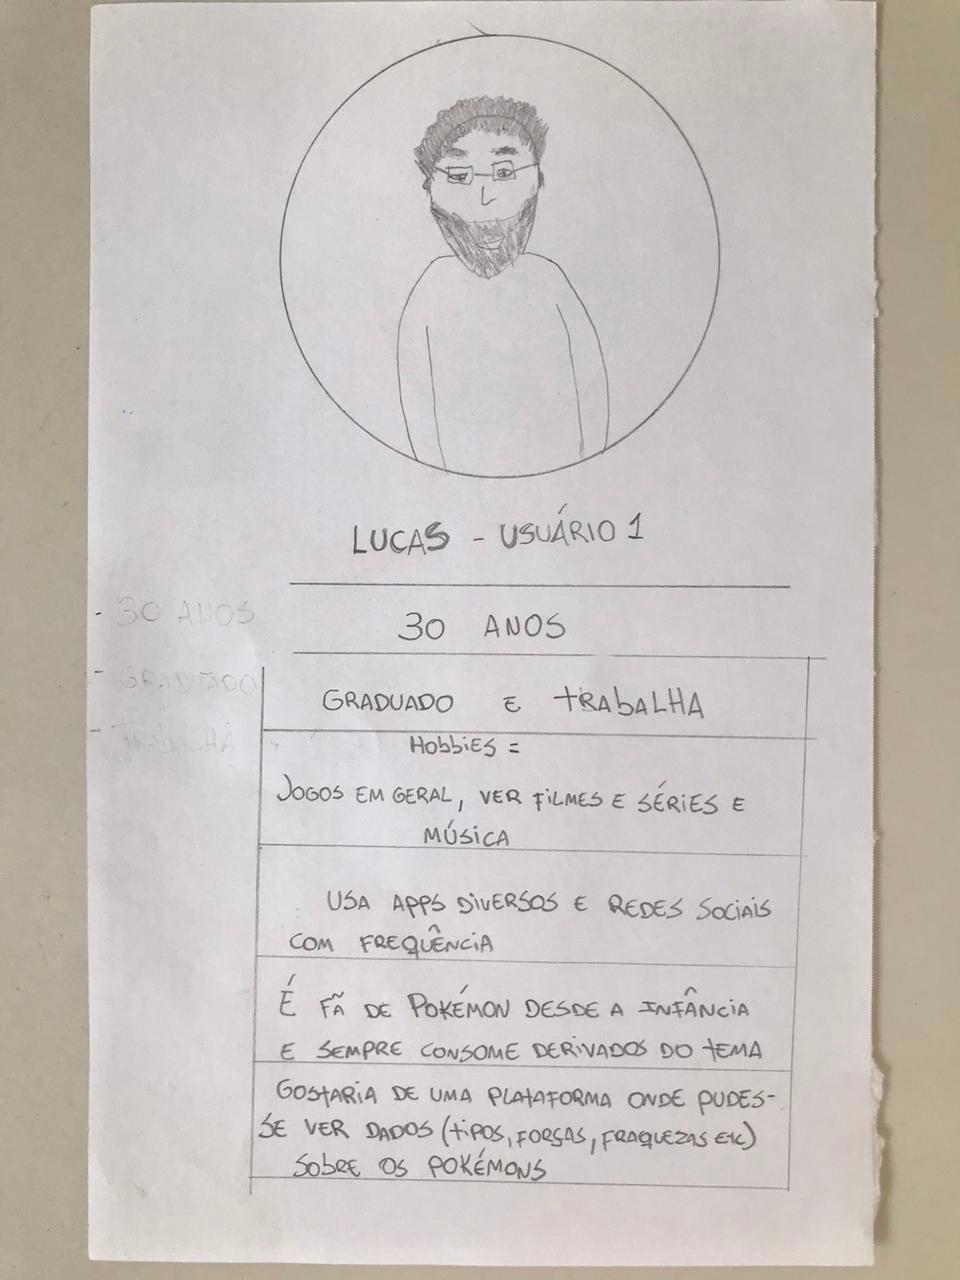 LUCAS - USUÁRIO 1
- 30 ANOS
30 ANOS
- GRADUADO
GRADUADO E TRABALHA
- TRABALHA
HOBBIES =
JOGOS EM GERAL, VER FILMES E SÉRIES E
MÚSICA
USA APPS DIVERSOS E REDES SOCIAIS
COM FREQUÊNCIA
É FÃ DE POKÉMON DESDE A INFÂNCIA
E SEMPRE CONSOME DERIVADOS DO TEMA
GOSTARIA DE UMA PLATAFORMA ONDE PUDES-
SE VER DADOS (TIPOS, FORÇAS, FRAQUEZAS ETC)
SOBRE OS POKÉMONS